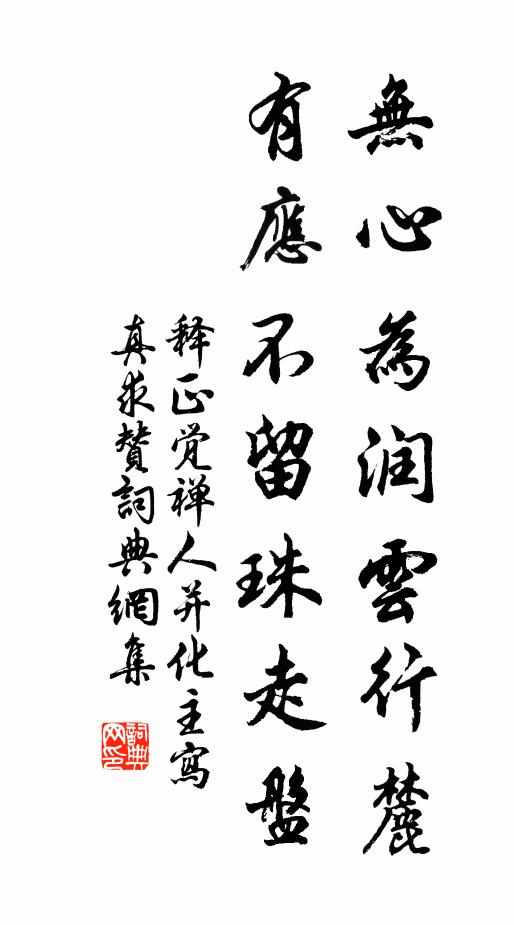 無心為润雲行麓
有應不留珠走盤
释正觉禅人并化主寫
真求賛詞典網集
詞典网印